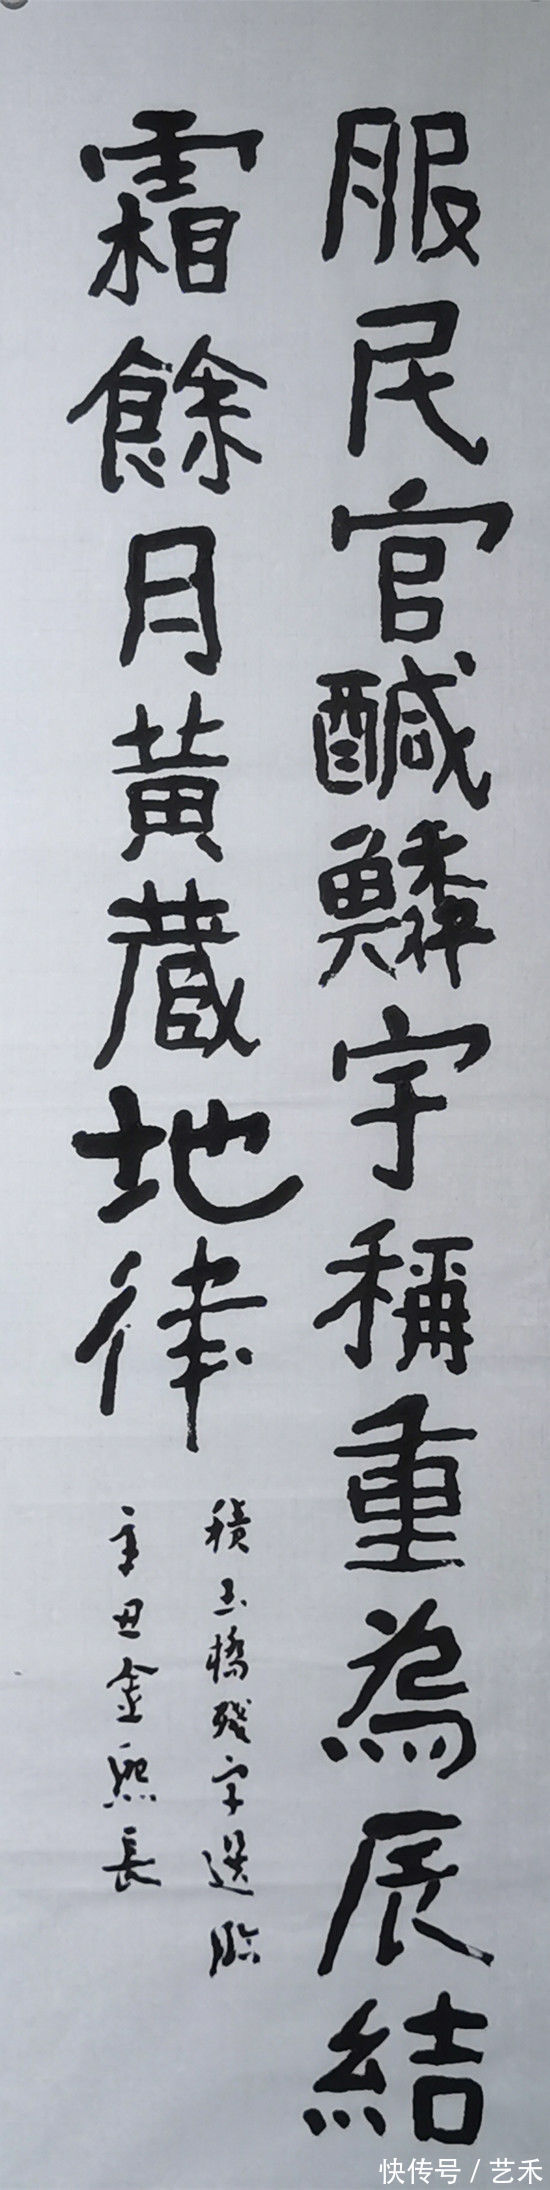 服民官醎鱗字稱重為辰結
霜餘月黃藏地律
積玉橋殘字選臨
辛丑金熙長
快传号/艺禾